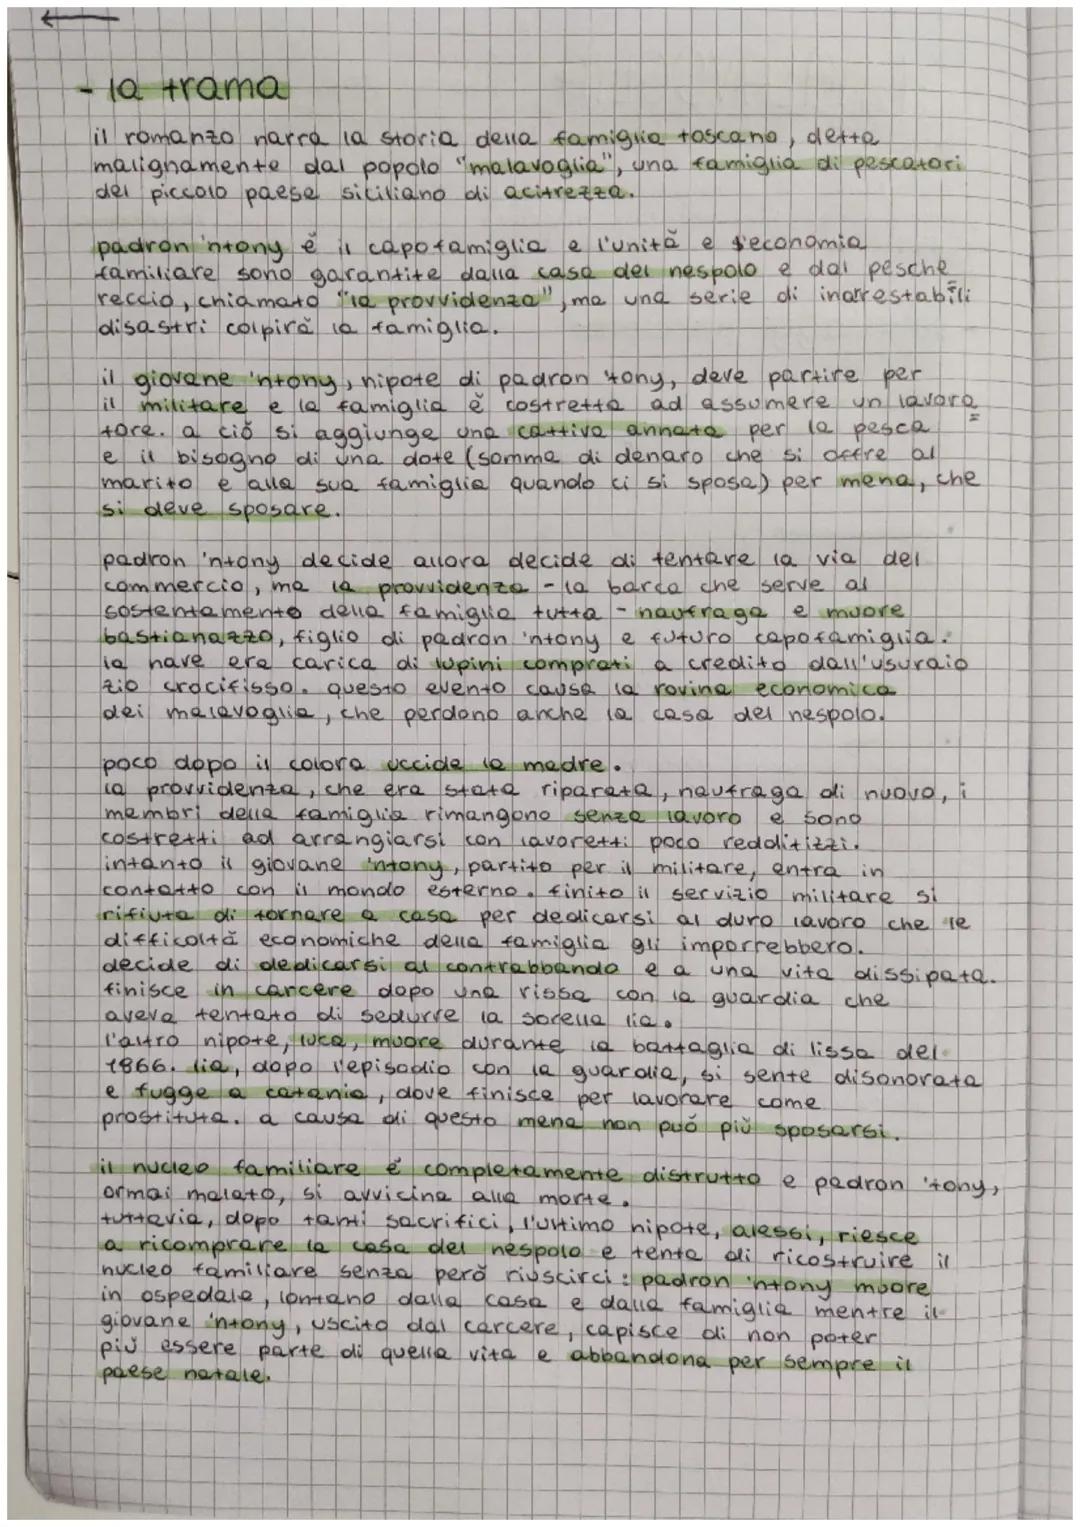 - la trama
il romanzo narra la storia della famiglia toscano, detta
malignamente dal popolo "malavoglia", una famiglia di pescatori
del piccolo paese siciliano di acitrezza.
padron 'ntony è il capofamiglia e l'unità e l'economia
familiare sono garantite dalla casa del nespolo e dal pesche
reccio, chiamato "la provvidenza", ma una serie di inarrestabili
disastri colpirà la famiglia.
il giovane 'ntony, nipote di padron 'tony, deve partire per
il militare e la famiglia è costretta ad assumere un lavora
tore. a ciò si aggiunge una cattiva annata per la pesca
e il bisogno di una dote (somma di denaro che si offre al
marito e alla sua famiglia quando ci si sposa) per mena, che
si deve sposare.
padron 'ntony decide allora decide di tentare la via del
commercio, ma la provvidenza - la barca che serve al
sostentamento della famiglia tutta - naufraga e muore
bastianazzo, figlio di padron 'ntony e futuro capofamiglia.
la nave era carica di lupini comprati a credito dall'usuraio
zio crocifisso. questo evento causa la rovina economica
dei malavoglia, che perdono anche la casa del nespolo.
poco dopo il colora uccide la madre.
la provvidenza, che era stata riparata, naufraga di nuovo, i
membri della famiglia rimangono senza lavoro e sono
costretti ad arrangiarsi con lavoretti poco redditizzi.
intanto il giovane 'ntony, partito per il militare, entra in
contatto con il mondo esterno. finito il servizio militare si
rifiuta di tornare a casa per dedicarsi al duro lavoro che le
difficoltà economiche della famiglia gli imporrebbero.
decide di dedicarsi al contrabbando e a una vita dissipata.
finisce in carcere dopo una rissa con la guardia che
aveva tentato di sedurre la sorella lia.
l'altro nipote, luca, muore durante la battaglia di lissa del
1866. lia, dopo l'episodio con la guardia, si sente disonorata
e fugge a catania, dove finisce per lavorare come
prostituta. a causa di questo mena non può più sposarsi.
il nucleo familiare è completamente distrutto e padron 'tony,
ormai malato, si avvicina alla morte.
tuttavia, dopo tanti sacrifici, l'ultimo nipote, alessi, riesce
a ricomprare la casa del nespolo e tenta di ricostruire il
nucleo familiare senza però riuscirci: padron 'ntony muore
in ospedale, lontano dalla casa e dalla famiglia mentre il
giovane 'ntony, uscito dal carcere, capisce di non poter
più essere parte di quella vita e abbandona per sempre il
paese natale.